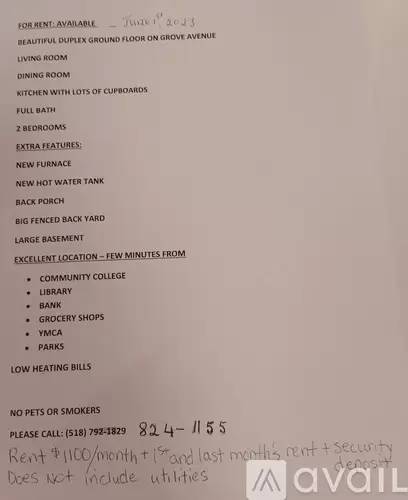 FOR RENT: AVAILABLE - June 1st 2023
BEAUTIFUL DUPLEX GROUND FLOOR ON GROVE AVENUE
LIVING ROOM
DINING ROOM
KITCHEN WITH LOTS OF CUPBOARDS
FULL BATH
2 BEDROOMS
EXTRA FEATURES:
NEW FURNACE
NEW HOT WATER TANK
BACK PORCH
BIG FENCED BACK YARD
LARGE BASEMENT
EXCELLENT LOCATION – FEW MINUTES FROM
• COMMUNITY COLLEGE
• LIBRARY
• BANK
• GROCERY SHOPS
• YMCA
• PARKS
LOW HEATING BILLS
NO PETS OR SMOKERS
PLEASE CALL: (518) 792-1829 824-1155
Rent $1100/month + 1st and last month's rent + security
deposit
Does Not include utilities
avail